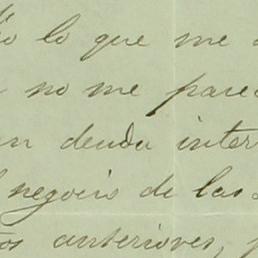 lo que me
no me pare
deuda inter
negocio de las
anteriores,